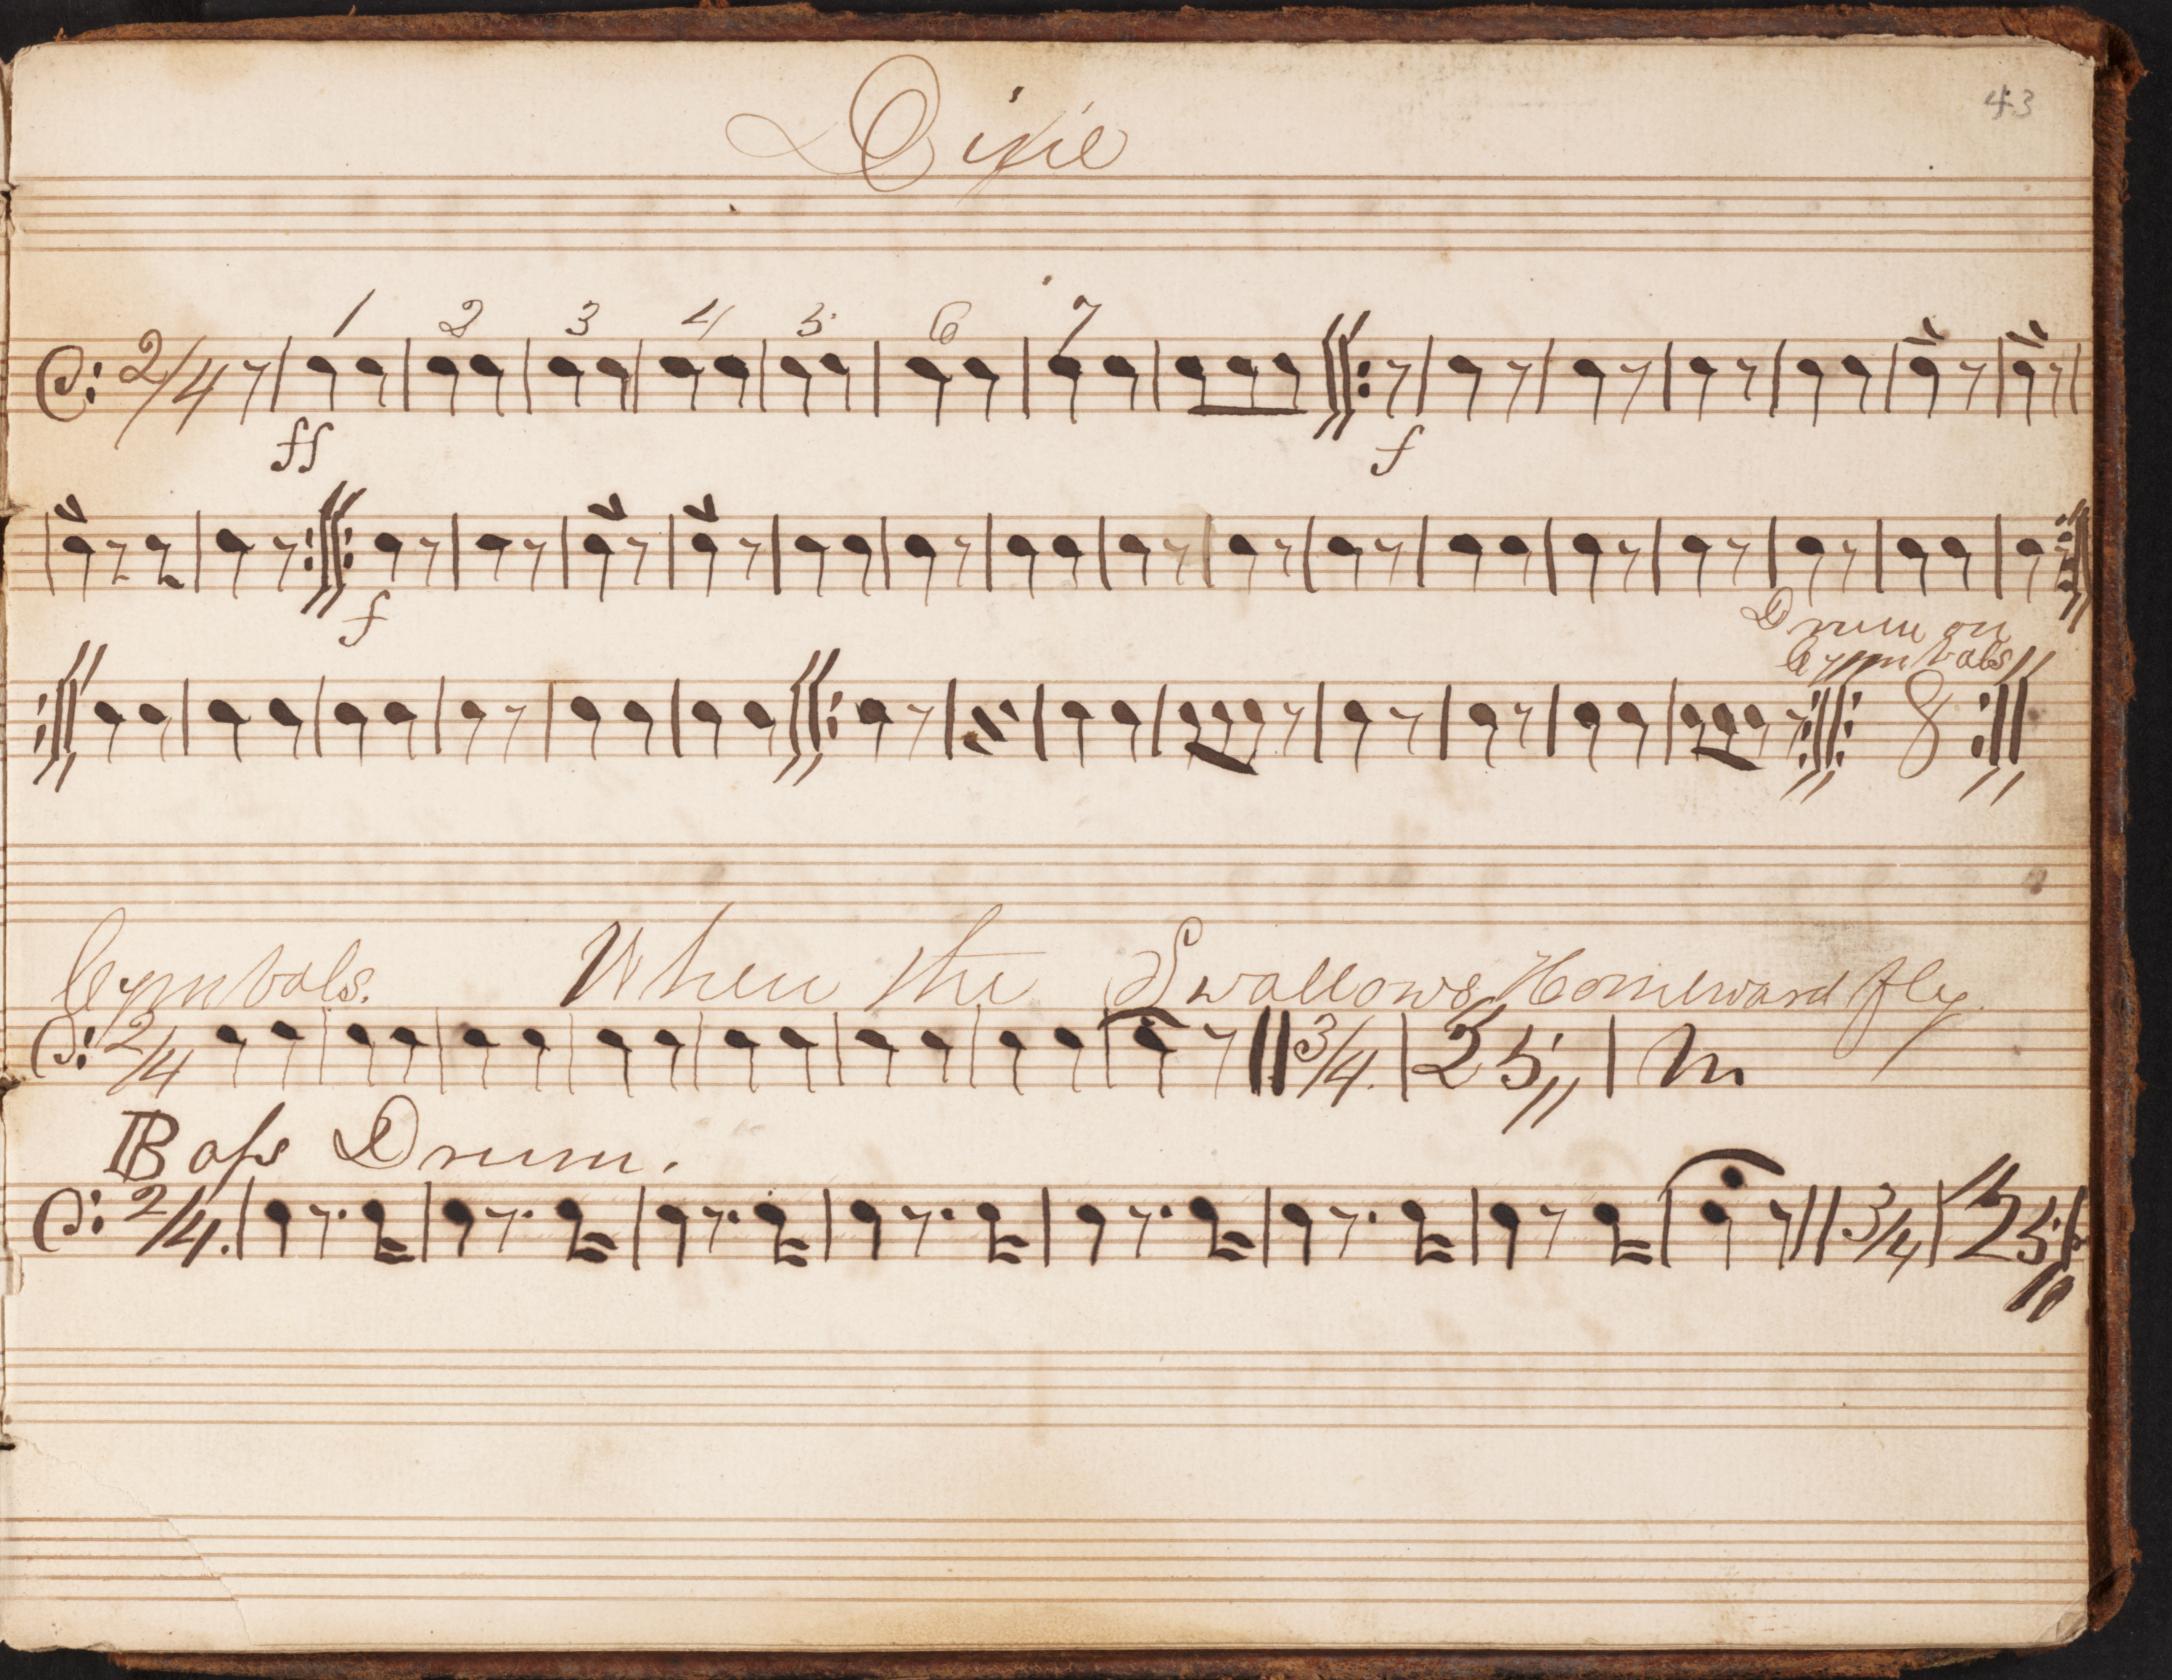 43
Dixie
2/4 1 2 3 4 5 6 7
ff f
f
Drum on
Cymbals
8
Cymbals. When the Swallows Homeward fly
2/4 3/4. 25
Bass Drum.
2/4. 3/4 25